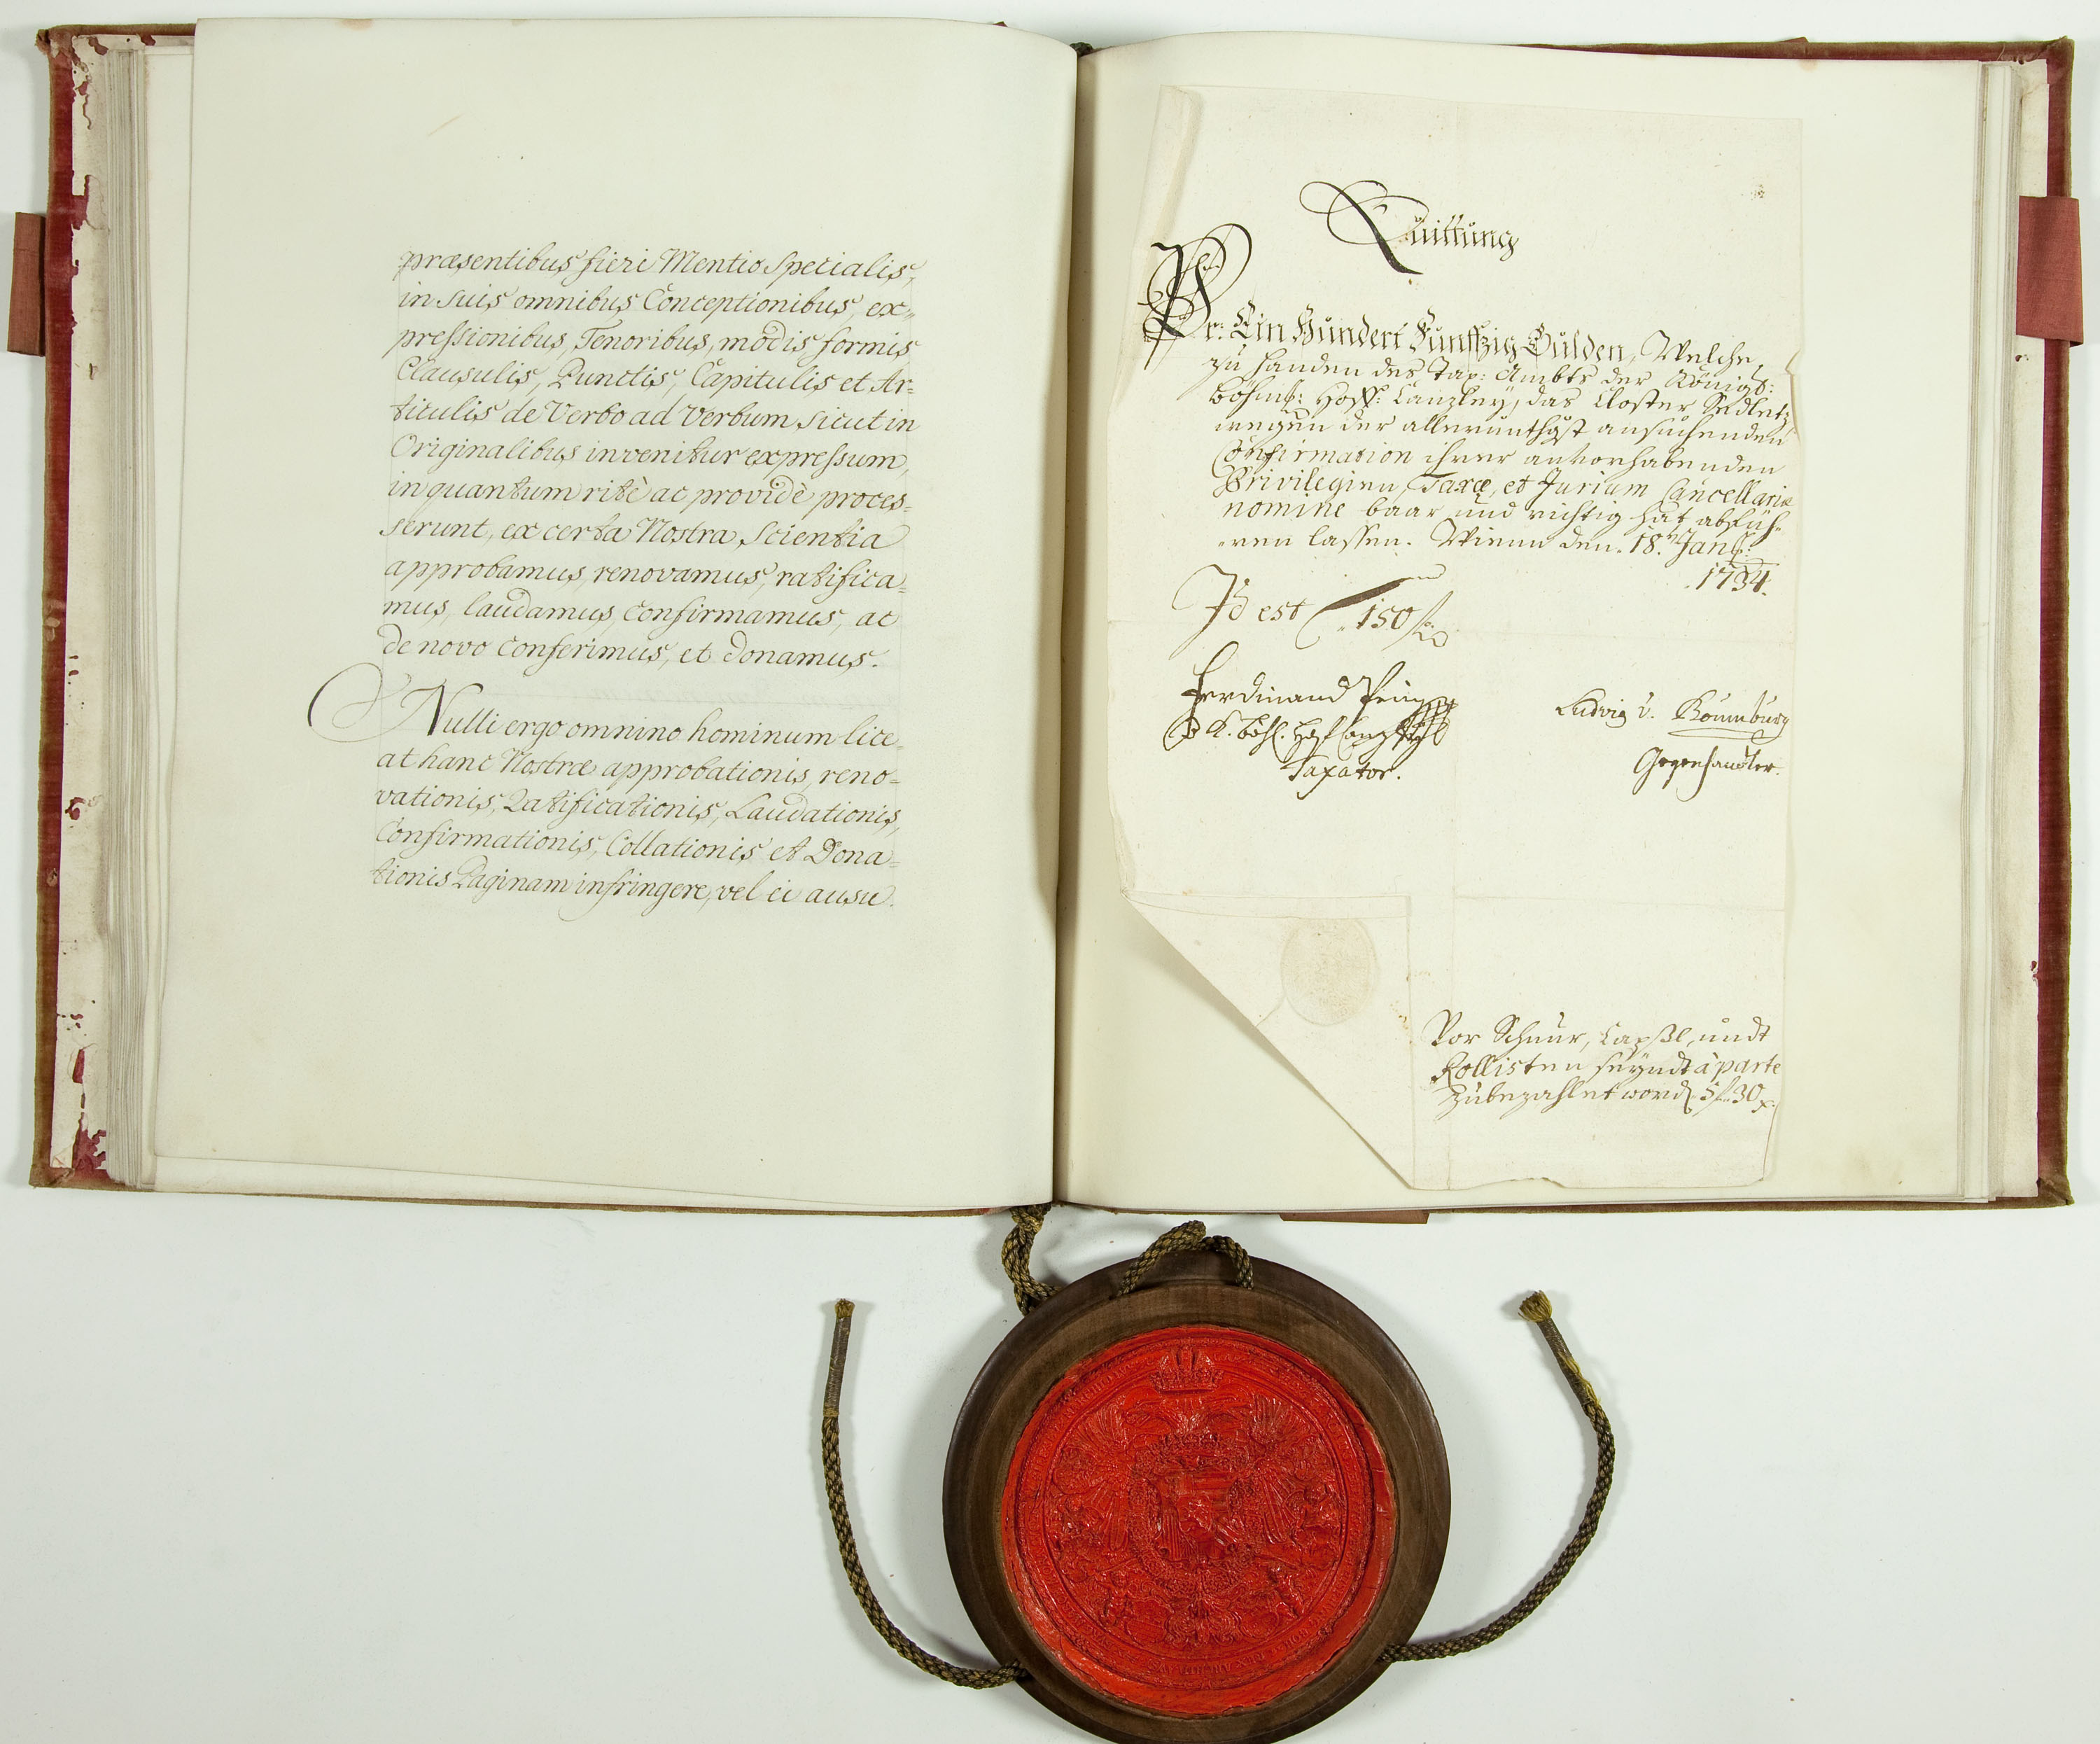 præsentibus fieri Mentio Specialis,
in suis omnibus Conceptionibus, ex-
pressionibus, Tenoribus, modis formis
Clausulis, Punctis, Capitulis et Ar-
ticulis de Verbo ad Verbum sicut in
Originalibus invenitur expressum,
in quantum ritè ac providè proces-
serunt, ex certa Nostra Scientia
approbamus, renovamus, ratifica-
mus, laudamus, confirmamus, ac
de novo conferimus, et donamus.
Nulli ergo omnino hominum lice-
at hanc Nostræ approbationis, reno-
vationis, Ratificationis, Laudationis,
Confirmationis, Collationis et Dona-
tionis Paginam infringere, vel ei ausu
Quittung
Pr: Ein Hundert Funffzig Gulden, Welche
zu handen des Tax: Ambts der Königl:
Böhmb: Hoff: Canzley, das Closter Sedletz
wegen der allerunthgst ansuchenden
Confirmation ihrer anvorhabenden
Privilegien, Taxæ, et Jurium Cancellariæ
nomine baar und richtig hat abfüh-
ren lassen. Wienn den 18. Jan:
1734.
Id est 150 f
Ferdinand
K. Böh. Hof
Taxator.
Ludwig v.
Gegenhandler.
Vor Schnur, Capßl, undt
Kollisten seyndt à parte
zubezahlet word 5 f 30 x.